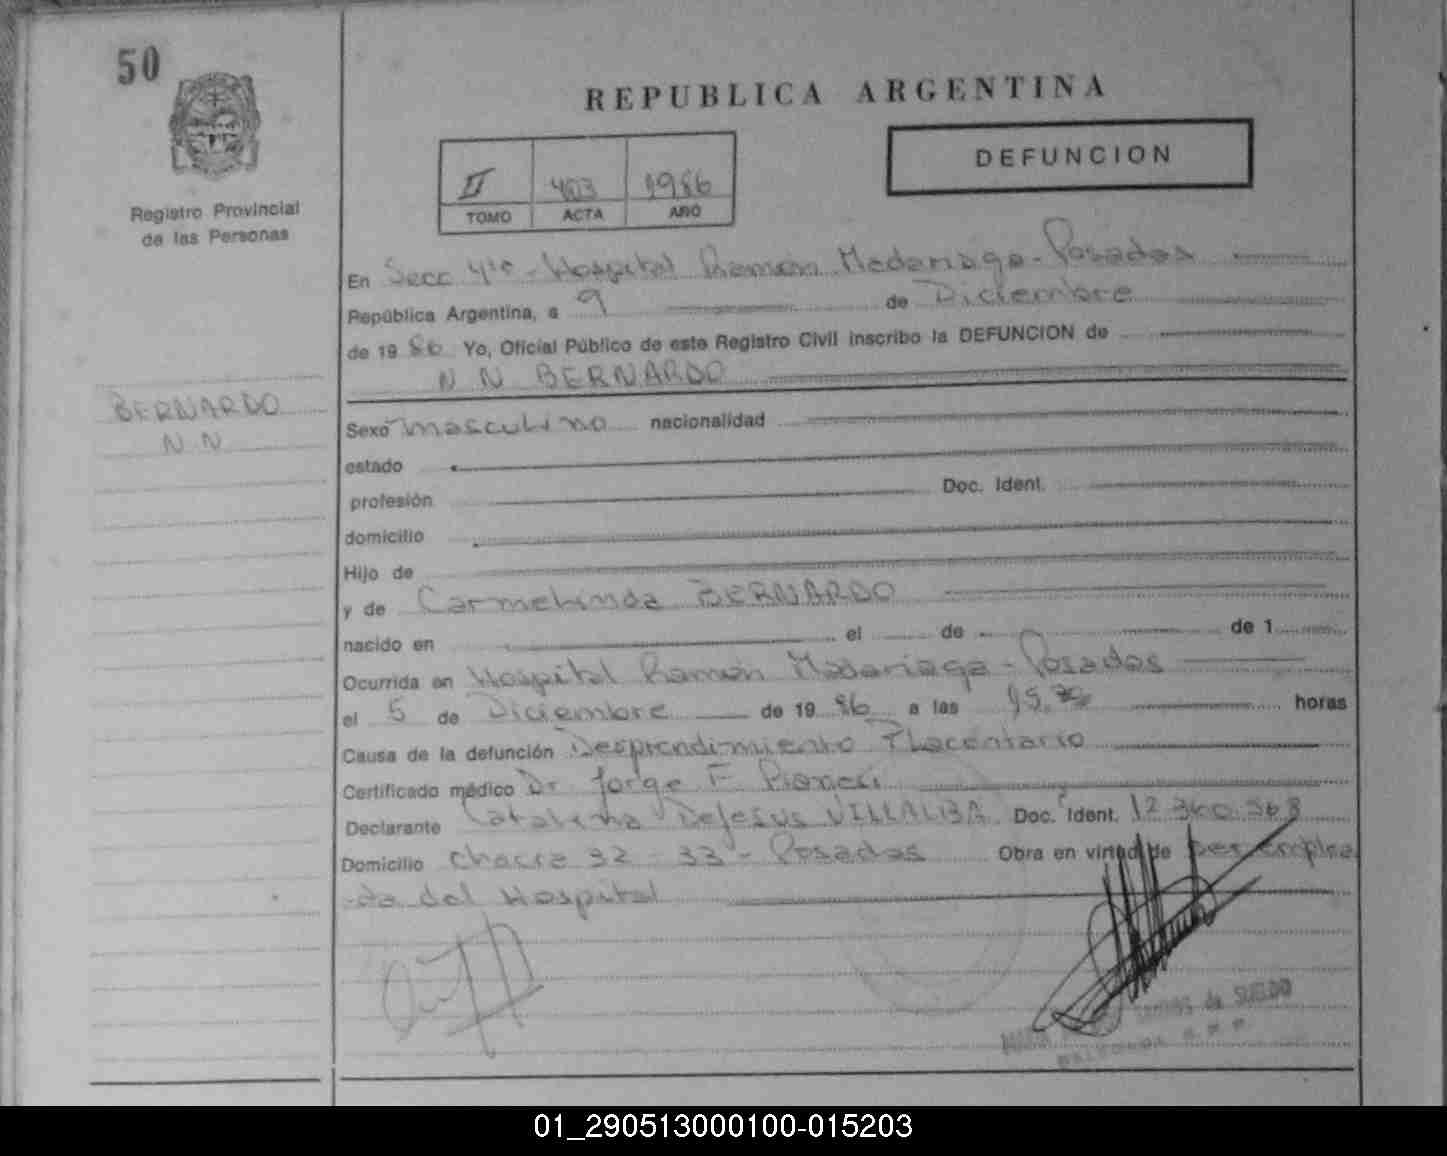 50
REPUBLICA ARGENTINA
DEFUNCION
II 403 1986
TOMO ACTA AÑO
Registro Provincial
de las Personas
En Secc 4ta - Hospital Ramon Madariaga - Posadas
República Argentina, a 9 de Diciembre
de 19 86 Yo, Oficial Público de este Registro Civil inscribo la DEFUNCION de
N N BERNARDO
BERNARDO
N N
Sexo masculino nacionalidad
estado
profesión Doc. Ident.
domicilio
Hijo de
y de Carmelinda BERNARDO
nacido en el de de 1
Ocurrida en Hospital Ramon Madariaga - Posadas
el 5 de Diciembre de 19 86 a las horas
Causa de la defunción Desprendimiento Placentario
Certificado médico Dr Jorge F.
Declarante Catalina DeJesus VILLALBA Doc. Ident. 12.360.368
Domicilio chacra 32 - 33 - Posadas Obra en virtud de ser emplea
da del Hospital
de SUELDO
01_290513000100-015203